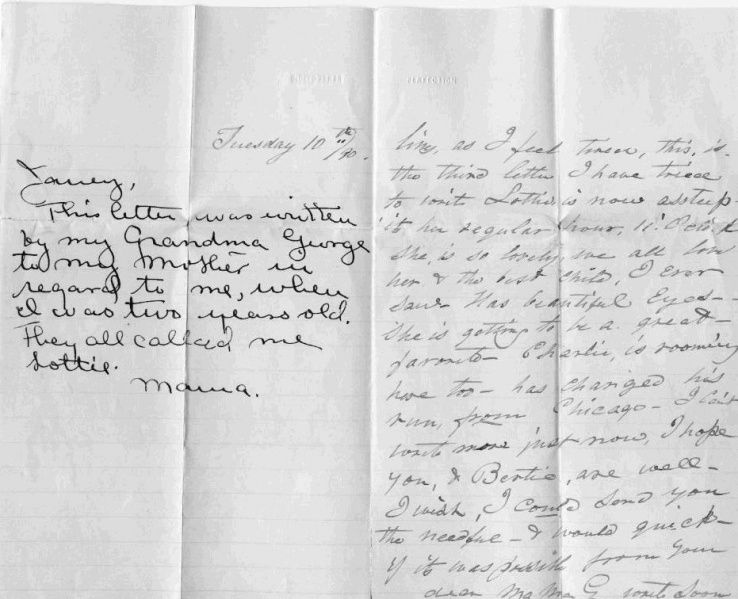 PERFECTION
Tuesday 10th/90.
Janey,
This letter was written
by my Grandma George
to my Mother in
regard to me, when
I was two years old.
They all called me
Lottie.
Mama.
ling, as I feel tired, this, is.
the third letter I have tried
to writ Lottie is now asleep-
it her regular hour, 11'
She, is so lovely, we all love
her & the best child, I ever
saw Has beautiful Eyes-
She is getting to be a great-
favorite- Charlie, is rooming
here too- has changed his
run, from Chicago- I can't
write more just now, I hope
you, & Bertie, are well-
I wish, I could send you
the needful- & would quick-
if it was possible from your
dear Ma Ma G writ soon